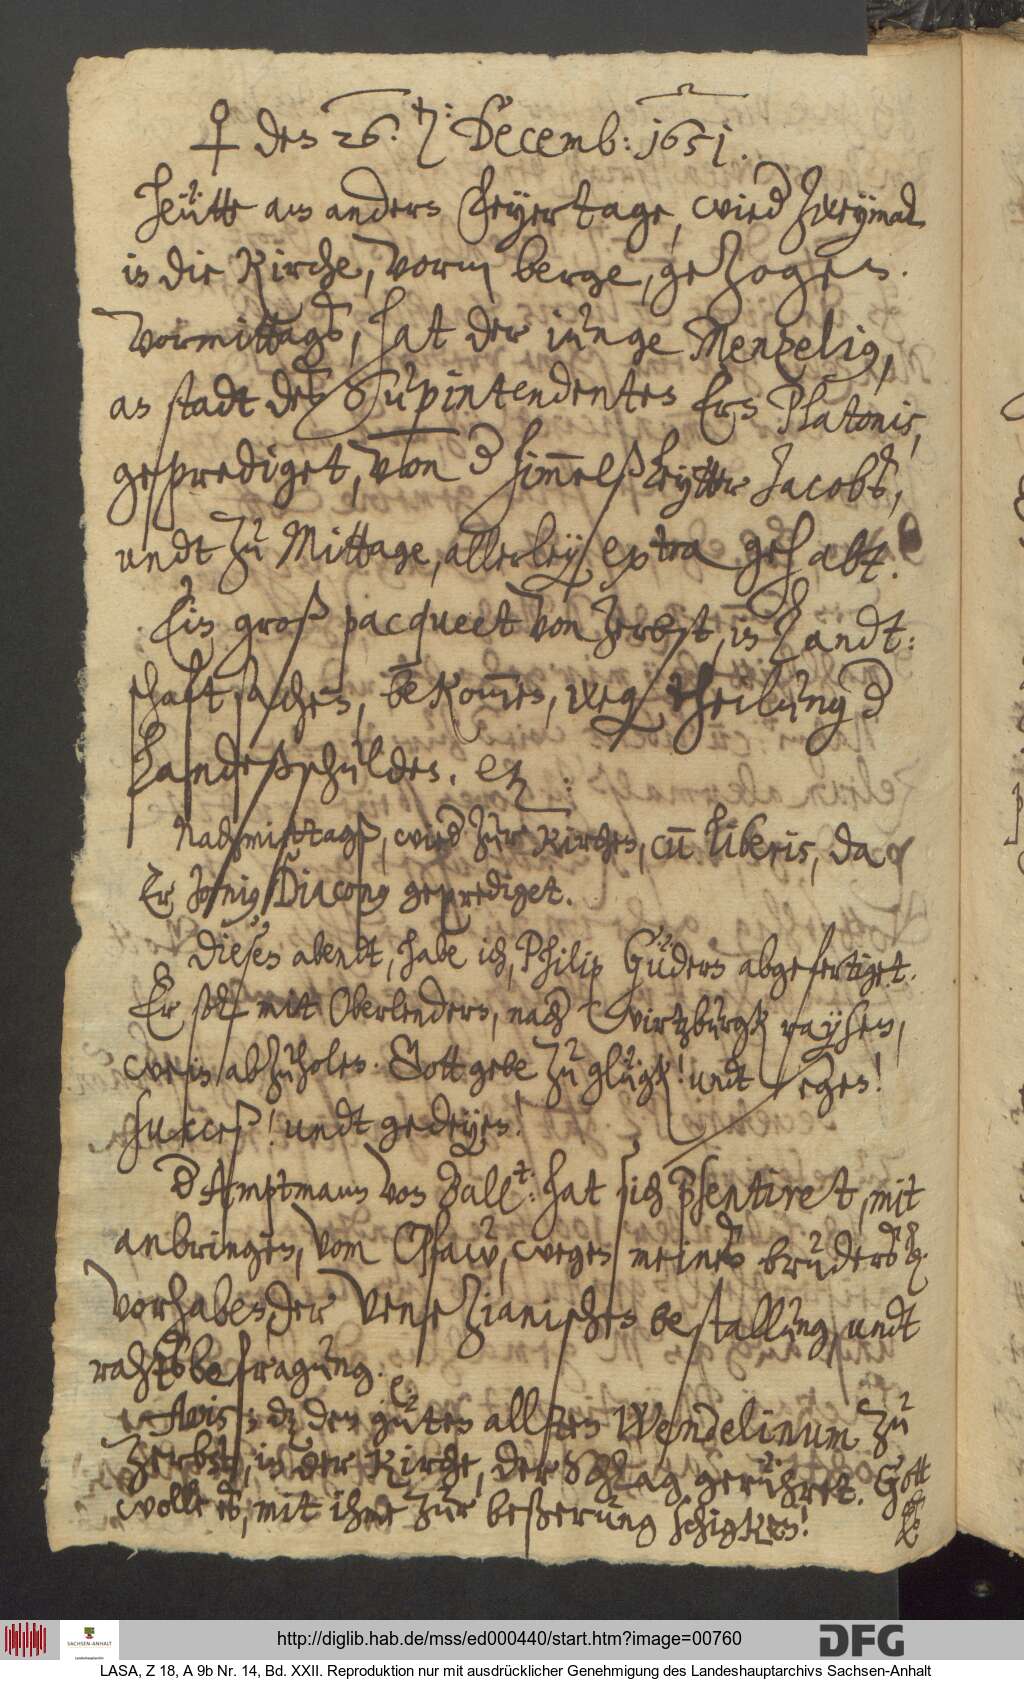 ♀ den 26. xber: Decemb: 1651.
Heütte am andern Feyertage, wird zweymal
in die Kirche, vorm berge, gezogen.
Vormittags, hat der iunge Menzelius,
an stadt des Supintendenten Ern Platonis,
geprediget, von der Himmelßleytter Jacobs,
undt zu Mittage, allerley extra gehabt.
Ein groß pacqueet von Zerbst, in Landt:
schaft sachen, bekommen, weg. theilung d
Landesschulden. etc:
Nachmittagß, wird zur Kirchen, cum liberis, da
Er Jonius Diaconus geprediget.
Diesen abendt, habe ich, Philip Güdern abgefertiget.
Er soll mit Oberlendern, nach Wirtzburgk raysen,
wein abzuholen. Gott gebe zu glügk! undt segen!
success! undt gedeyen!
d Amptmann von Ball.t: hat sich præsentiret, mit
anbringen, vom Plaw, wegen meines bruders
vorhabender Venezianischen bestallung, undt
rahtsbefragung.
Avis: daß den guten allten Wendelinum zu
Zerbst, in der Kirche, der Schlag gerühret. Gott
wolle es, mit ihme zur beßerung schigken!